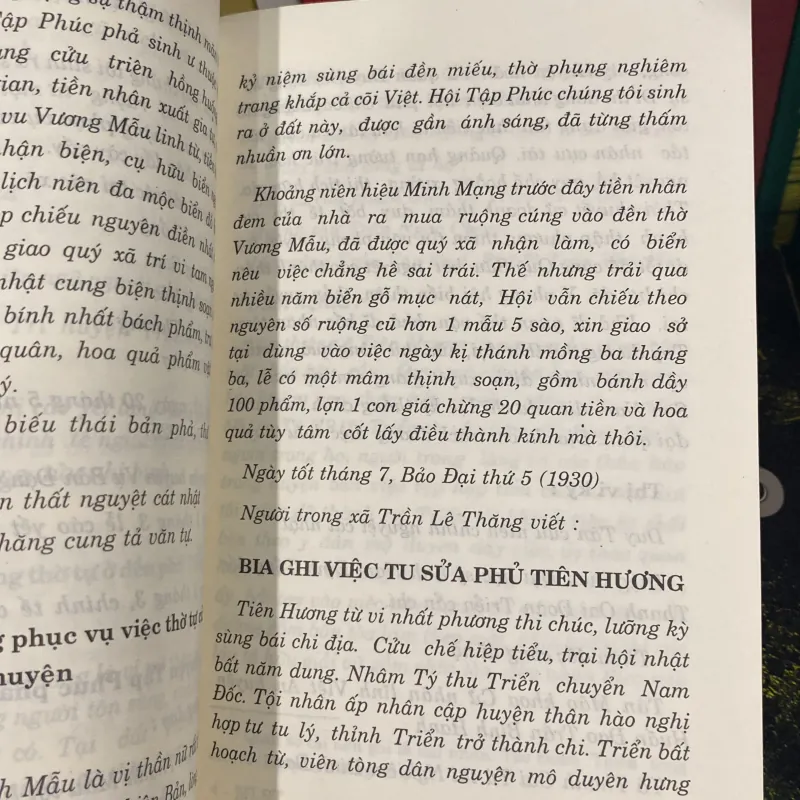 sự thậm thịnh
Tập Phúc phả sinh ư
cửu triên hồng
tiền nhân xuất gia
vu Vương Mẫu linh từ,
nhận biện, cụ hữu biển
lịch niên đa mộc biển
chiếu nguyên điền
giao quý xã trí vi tam
nhật cung biện thịnh soạn,
bính nhất bách phẩm,
quân, hoa quả phẩm
ý.
biếu thái bản phả,
thất nguyệt cát nhật
cung tả văn tự.
phục vụ việc thờ tự
Mẫu là vị thần nữ
kỷ niệm sùng bái đền miếu, thờ phụng nghiêm
trang khắp cả cõi Việt. Hội Tập Phúc chúng tôi sinh
ra ở đất này, được gần ánh sáng, đã từng thấm
nhuần ơn lớn.
Khoảng niên hiệu Minh Mạng trước đây tiền nhân
đem của nhà ra mua ruộng cúng vào đền thờ
Vương Mẫu, đã được quý xã nhận làm, có biển
nêu việc chẳng hề sai trái. Thế nhưng trải qua
nhiều năm biển gỗ mục nát, Hội vẫn chiếu theo
nguyên số ruộng cũ hơn 1 mẫu 5 sào, xin giao sở
tại dùng vào việc ngày kị thánh mồng ba tháng
ba, lễ có một mâm thịnh soạn, gồm bánh dầy
100 phẩm, lợn 1 con giá chừng 20 quan tiền và hoa
quả tùy tâm cốt lấy điều thành kính mà thôi.
Ngày tốt tháng 7, Bảo Đại thứ 5 (1930)
Người trong xã Trần Lê Thăng viết :
BIA GHI VIỆC TU SỬA PHỦ TIÊN HƯƠNG
Tiên Hương từ vi nhất phương thi chúc, lưỡng kỳ
sùng bái chi địa. Cửu chế hiệp tiểu, trại hội nhật
bất năm dung. Nhâm Tý thu Triển chuyển Nam
Đốc. Tội nhân ấp nhân cập huyện thân hào nghị
hợp tư tu lý, thỉnh Triển trở thành chi. Triển bất
hoạch từ, viên tòng dân nguyện mô duyên hưng